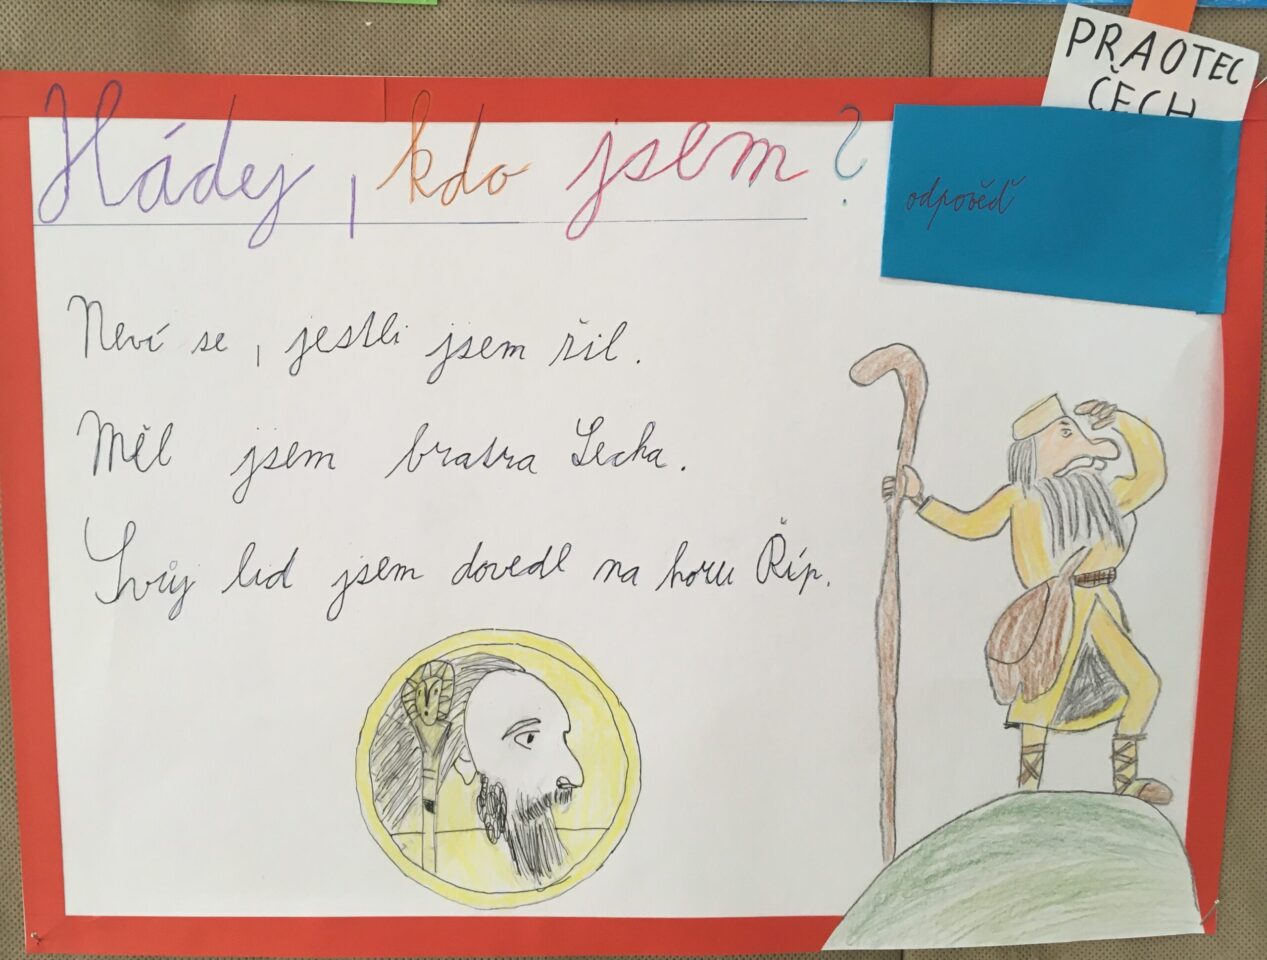 PRAOTEC
ČECH
Hádej, kdo jsem?
odpověď
Neví se, jestli jsem žil.
Měl jsem bratra Lecha.
Svůj lid jsem dovedl na horu Říp.